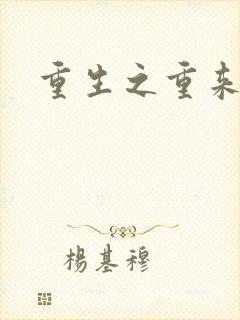 重生之重来
楊基穆